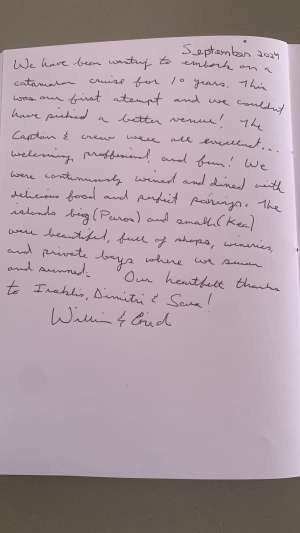 September 2024
We have been wanting to embark on a
catamaran cruise for 10 years. This
was our first attempt and we couldn't
have picked a better venue! The
Captain & crew were all excellent...
welcoming, proffesional, and fun! We
were continuously wined and dined with
delicious food and perfect pairings. The
islands big (Paros) and small (Kea)
were beautiful, full of shops, wineries,
and private bays where we swam
and sunned. Our heartfelt thanks
to Iraklis, Dimitri & Sara!
&